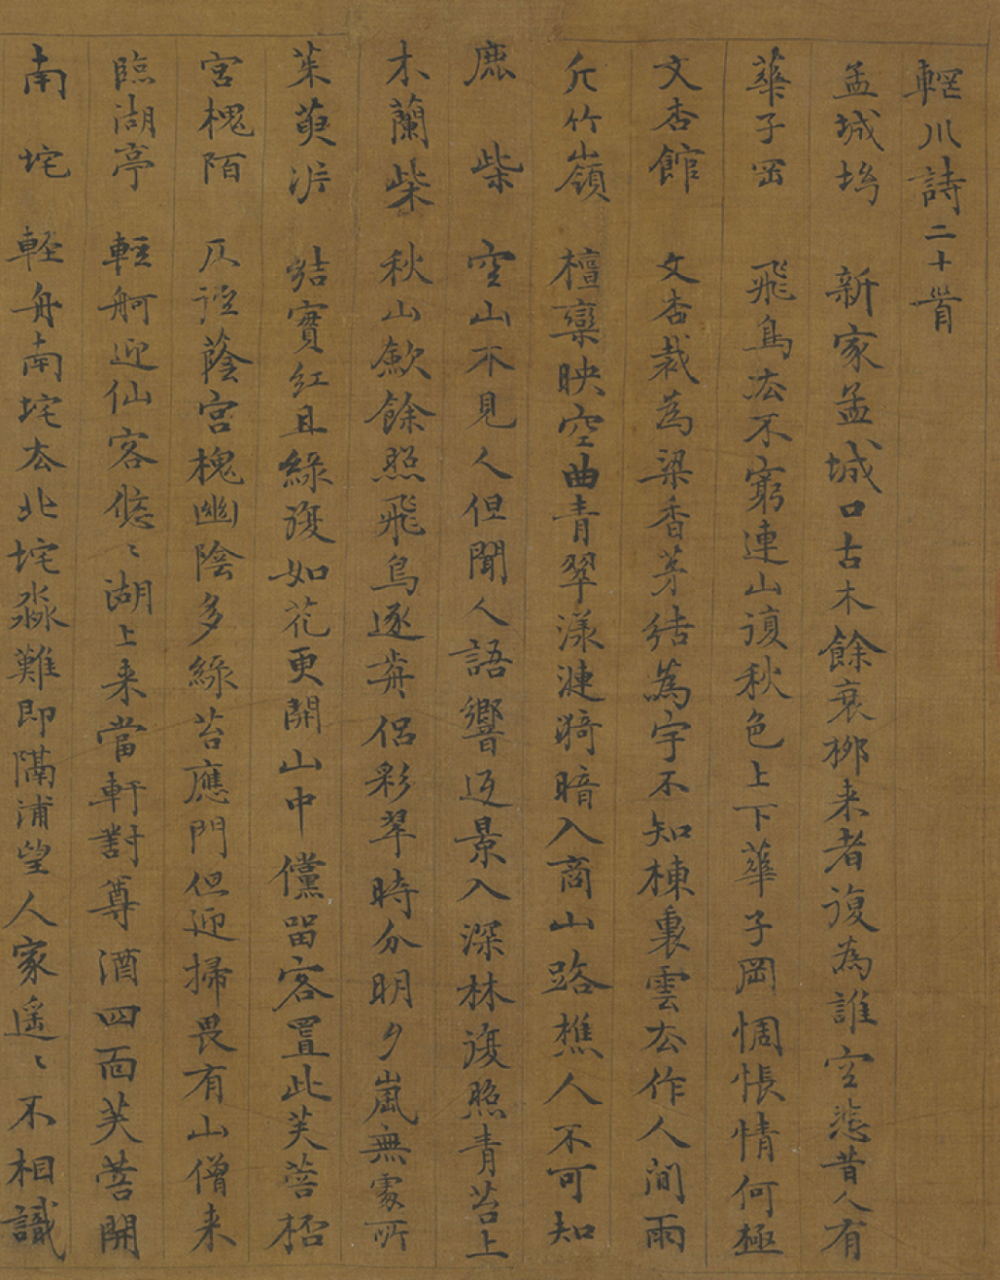 輞川詩二十首
孟城坳 新家孟城口古木餘衰栁来者復為誰空悲昔人有
華子岡 飛鳥去不窮連山復秋色上下華子岡惆悵情何極
文杏館 文杏裁為梁香茅结為宇不知棟裏雲去作人間雨
斤竹嶺 檀欒映空曲青翠漾漣漪暗入商山路樵人不可知
鹿柴 空山不見人但聞人語響返景入深林復照青苔上
木蘭柴 秋山歛餘照飛鳥逐前侶彩翠時分明夕嵐無處所
茱萸沜 结實紅且綠復如花更開山中儻留客置此芙蓉杯
宮槐陌 仄逕蔭宮槐幽陰多綠苔應門但迎掃畏有山僧来
臨湖亭 輕舸迎仙客悠〻湖上来當軒對尊酒四面芙蓉開
南垞 輕舟南垞去北垞淼難即隔浦望人家遥〻不相識